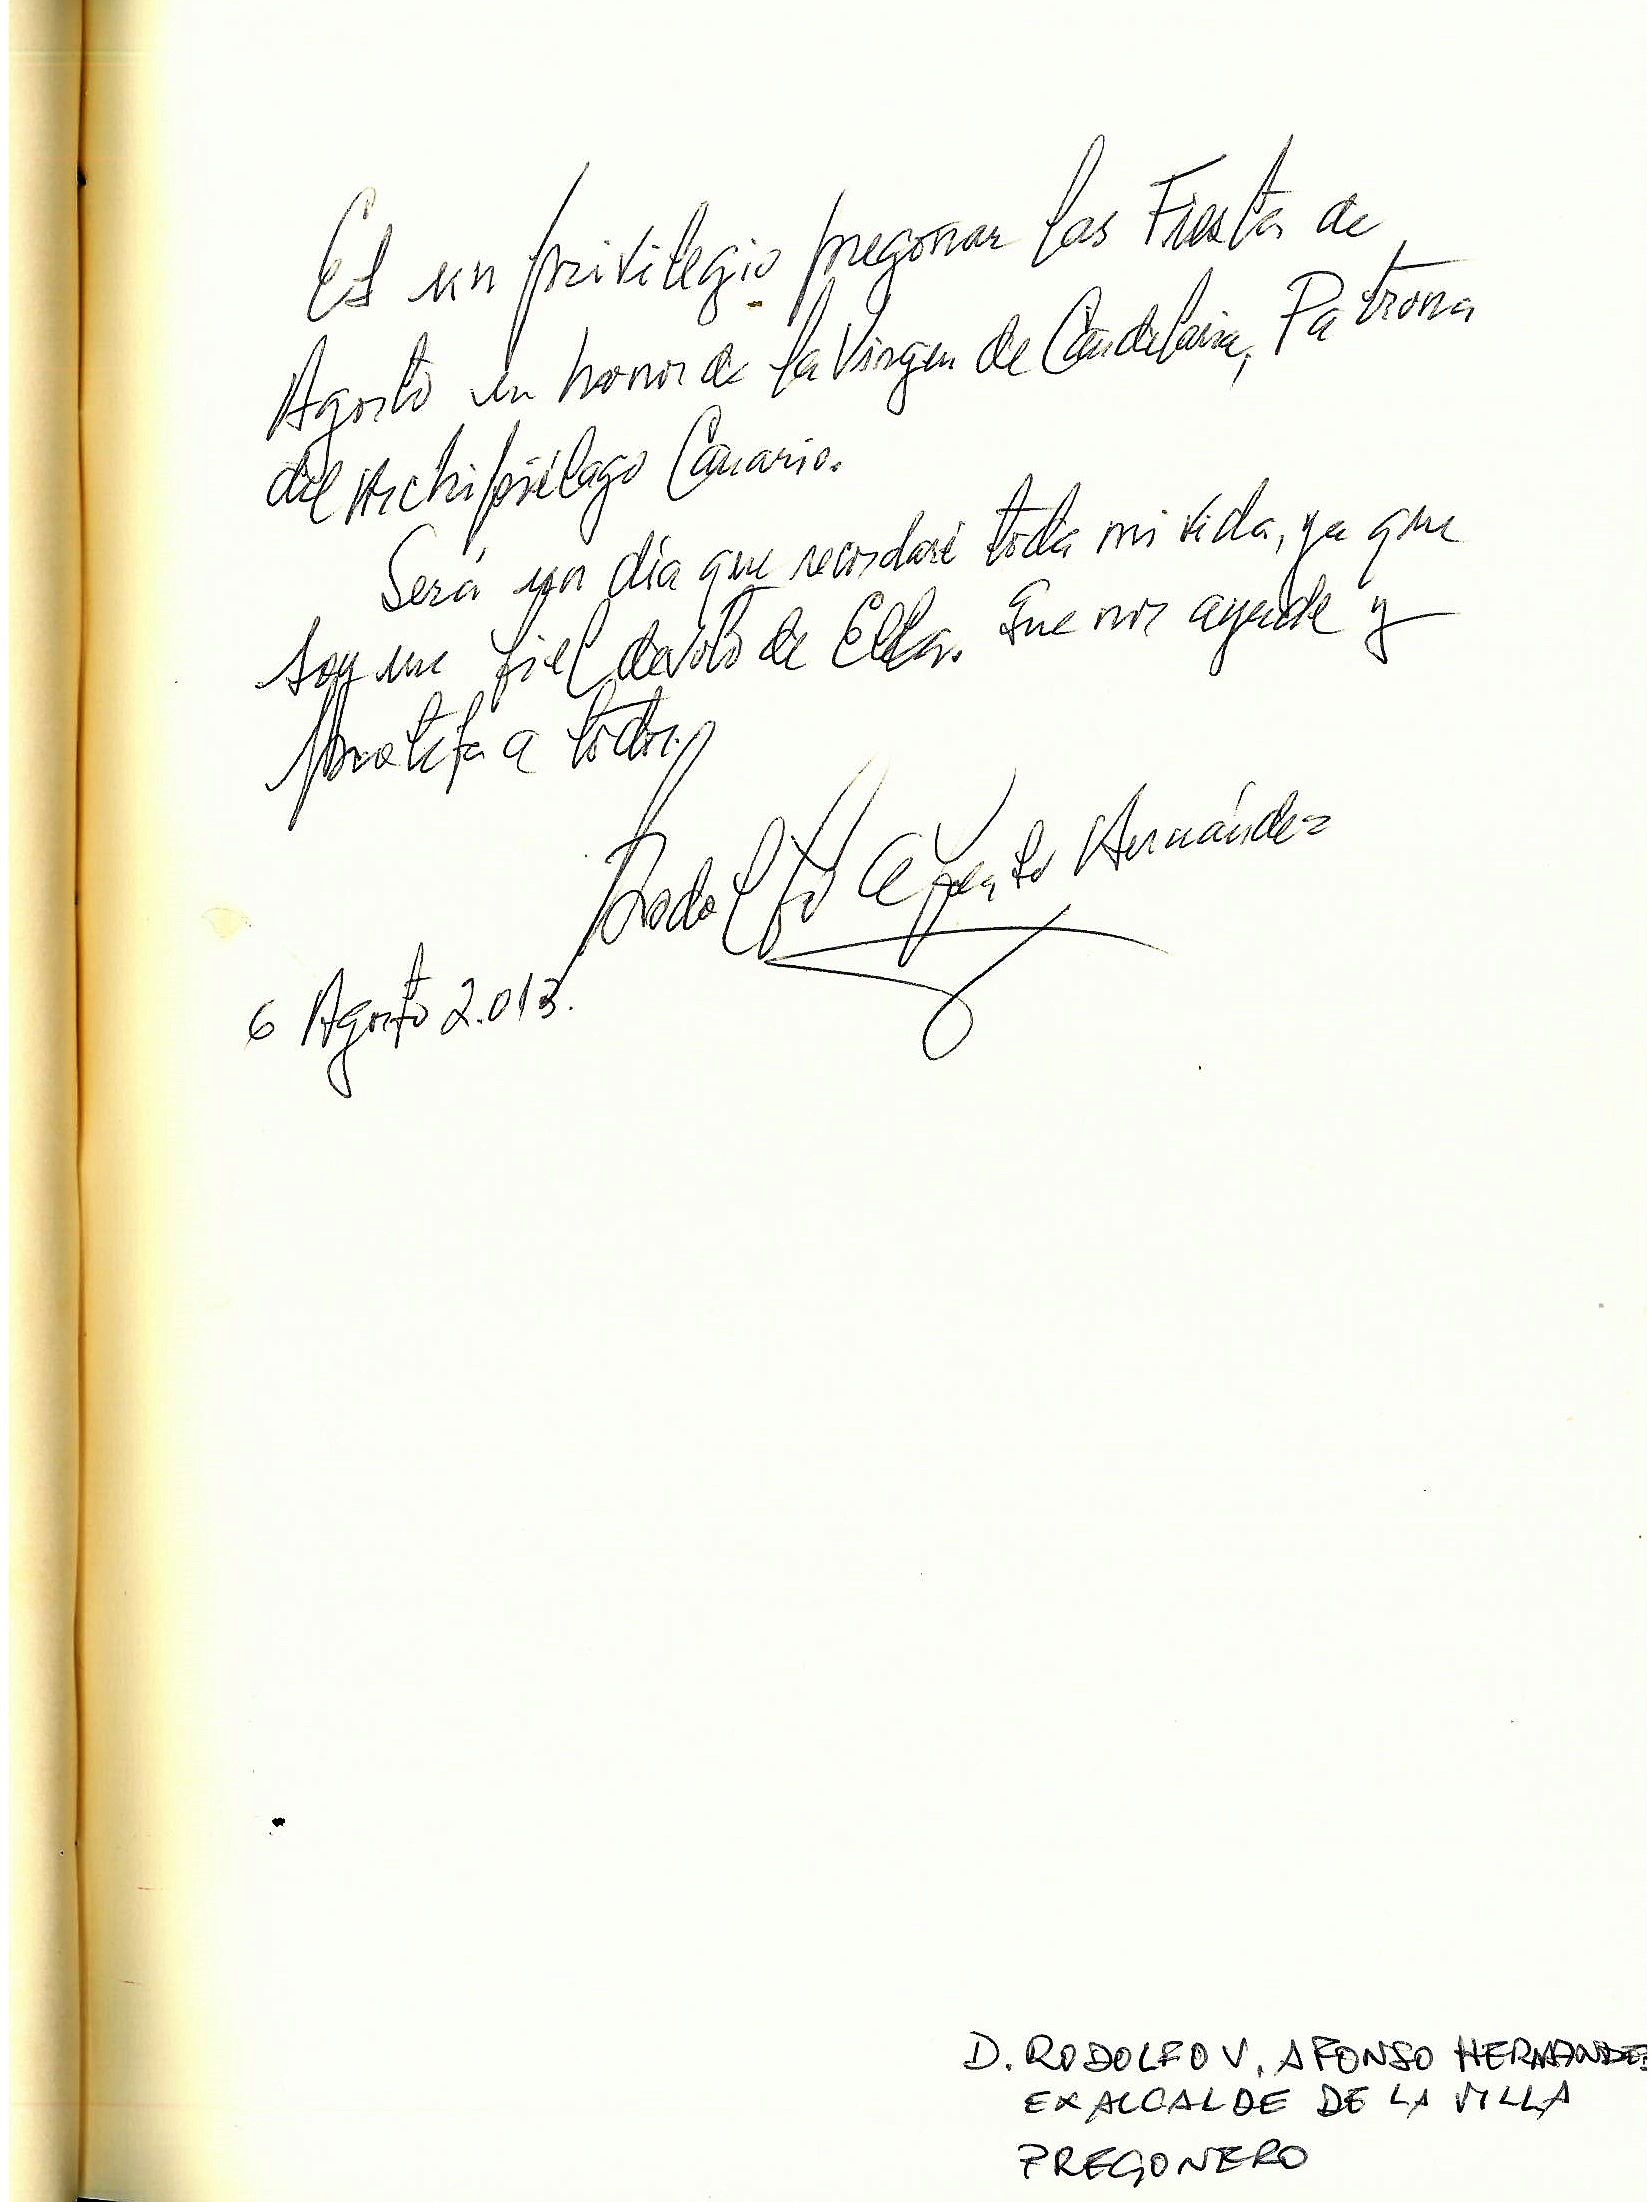 Es un privilegio pregonar las Fiestas de
Agosto en honor de la Virgen de Candelaria, Patrona
del Archipiélago Canario.
Será un día que recordaré toda mi vida, ya que
soy un fiel devoto de Ella. Que nos ayude y
proteja a todos.
Rodolfo Afonso Hernández
6 Agosto 2.013.
D. RODOLFO V. AFONSO HERNANDE
EXALCALDE DE LA VILLA
PREGONERO